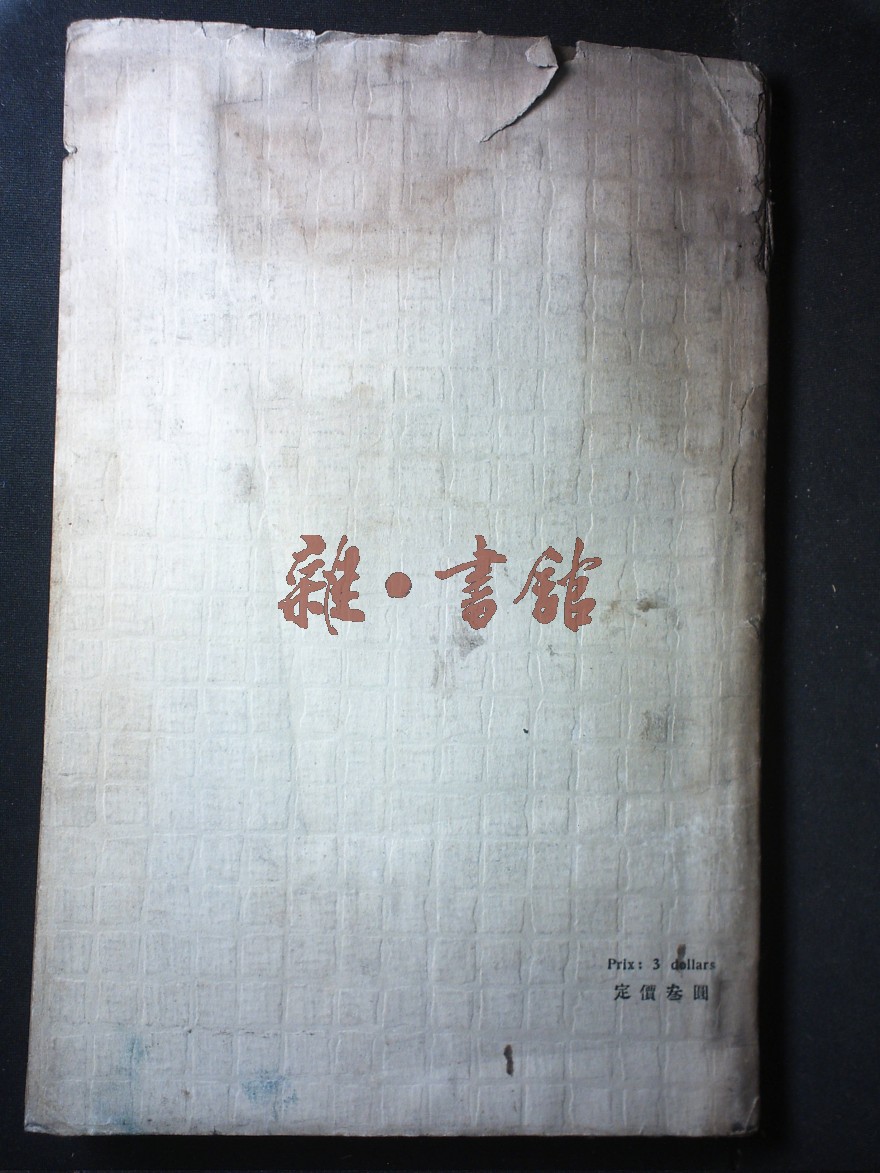 雜·書館
Prix: 3 dollars
定價叁圓